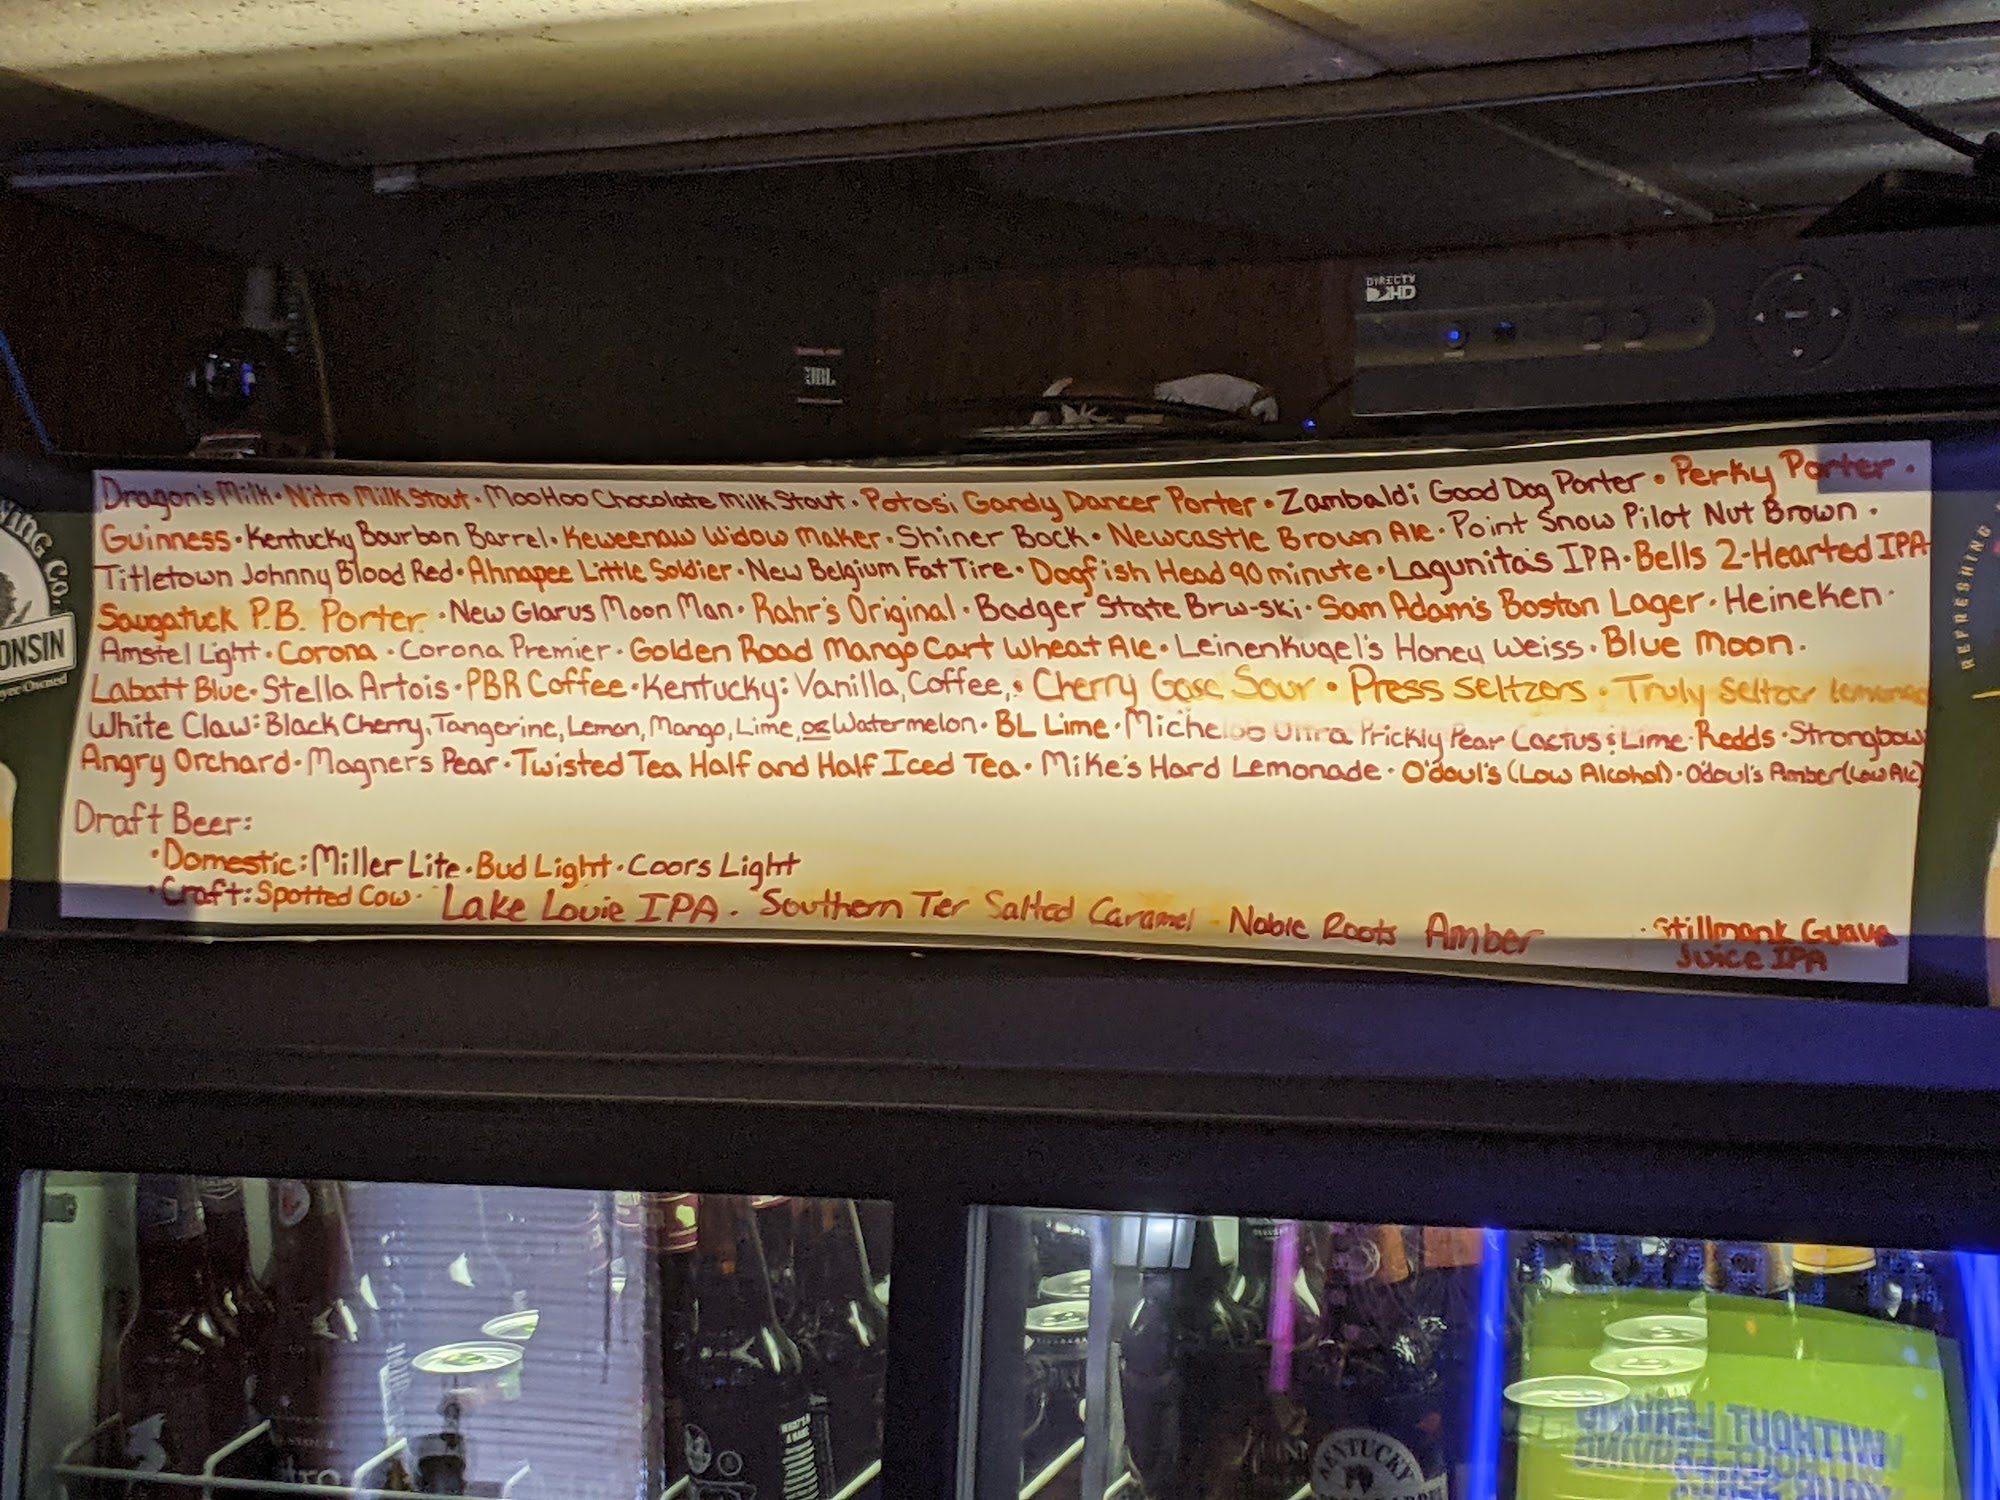 DIRECTV
HD
JBL
Dragon's Milk • Nitro Milk Stout • MooHoo Chocolate Milk Stout • Potosi Gandy Dancer Porter • Zambaldi Good Dog Porter • Perky Porter •
Guinness • Kentucky Bourbon Barrel • Keweenaw Widow Maker • Shiner Bock • Newcastle Brown Ale • Point Snow Pilot Nut Brown •
Titletown Johnny Blood Red • Ahnapee Little Soldier • New Belgium Fat Tire • Dogfish Head 90 minute • Lagunitas IPA • Bells 2-Hearted IPA
Saugatuck P.B. Porter • New Glarus Moon Man • Rahr's Original • Badger State Brw-ski • Sam Adam's Boston Lager • Heineken •
Amstel Light • Corona • Corona Premier • Golden Road Mango Cart Wheat Ale • Leinenkugel's Honey Weiss • Blue Moon •
Labatt Blue • Stella Artois • PBR Coffee • Kentucky: Vanilla, Coffee, • Cherry Gose Sour • Press seltzers • Truly Seltzer lemonade
White Claw: Black Cherry, Tangerine, Lemon, Mango, Lime, or Watermelon • BL Lime • Michelob Ultra Prickly Pear Cactus & Lime • Redds • Strongbow
Angry Orchard • Magners Pear • Twisted Tea Half and Half Iced Tea • Mike's Hard Lemonade • O'doul's (Low Alcohol) • O'doul's Amber (Low Alc)
Draft Beer:
• Domestic: Miller Lite • Bud Light • Coors Light
• Craft: Spotted Cow • Lake Louie IPA • Southern Ter Salted Caramel - Noble Roots Amber • Stillmank Guava
Juice IPA
ING CO.
ONSIN
Owned
REFRESHING
KENTUCKY
WITHOUT LEAVING